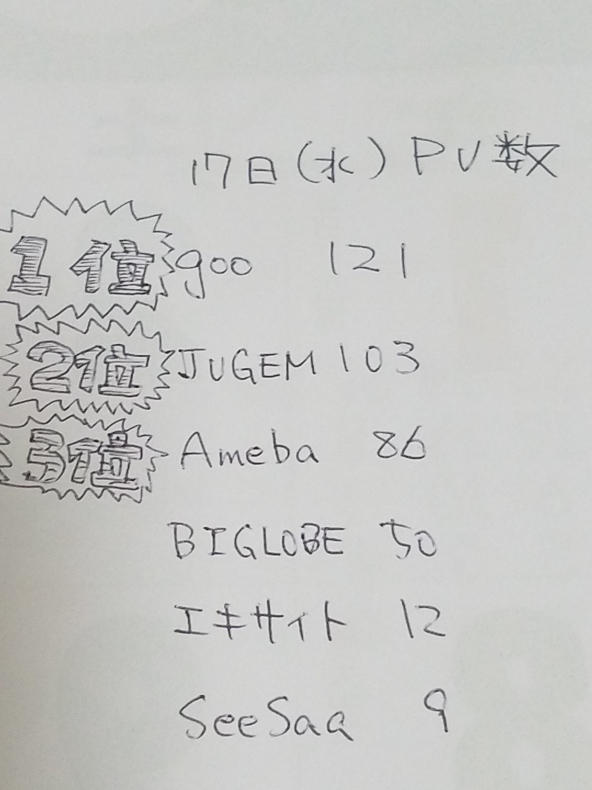 17日(水) PV数
1位 goo 121
2位 JUGEM 103
3位 Ameba 86
BIGLOBE 50
エキサイト 12
SeeSaa 9